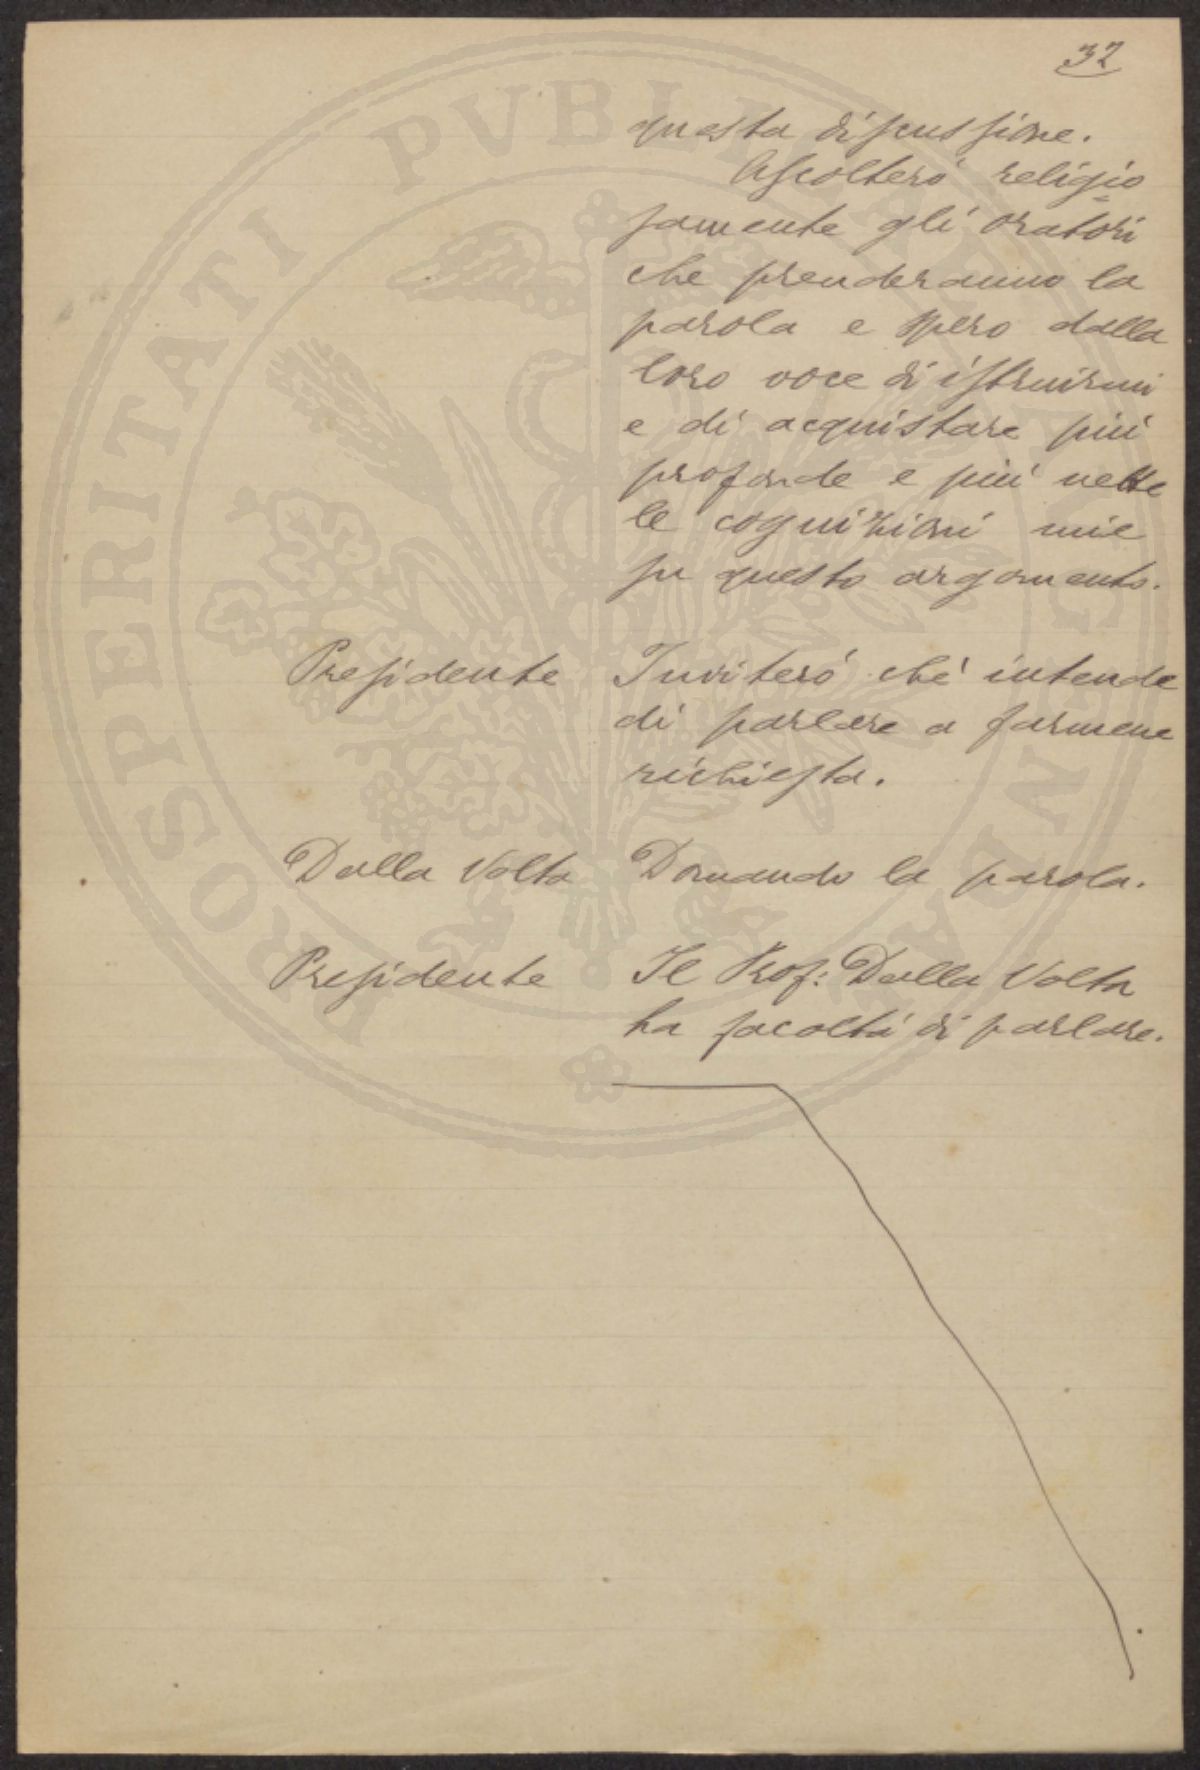 32
questa discussione.
Ascolterò religio
samente gli oratori
che prenderanno la
parola e spero dalla
loro voce di istruirmi
e di acquistare più
profonde e più nette
le cognizioni mie
su questo argomento.
Presidente Inviterò chi intende
di parlare a farmene
richiesta.
Dalla Volta Domando la parola.
Presidente Il Prof: Dalla Volta
ha facoltà di parlare.
PROSPERITATI PVBLICAE AVGENDAE